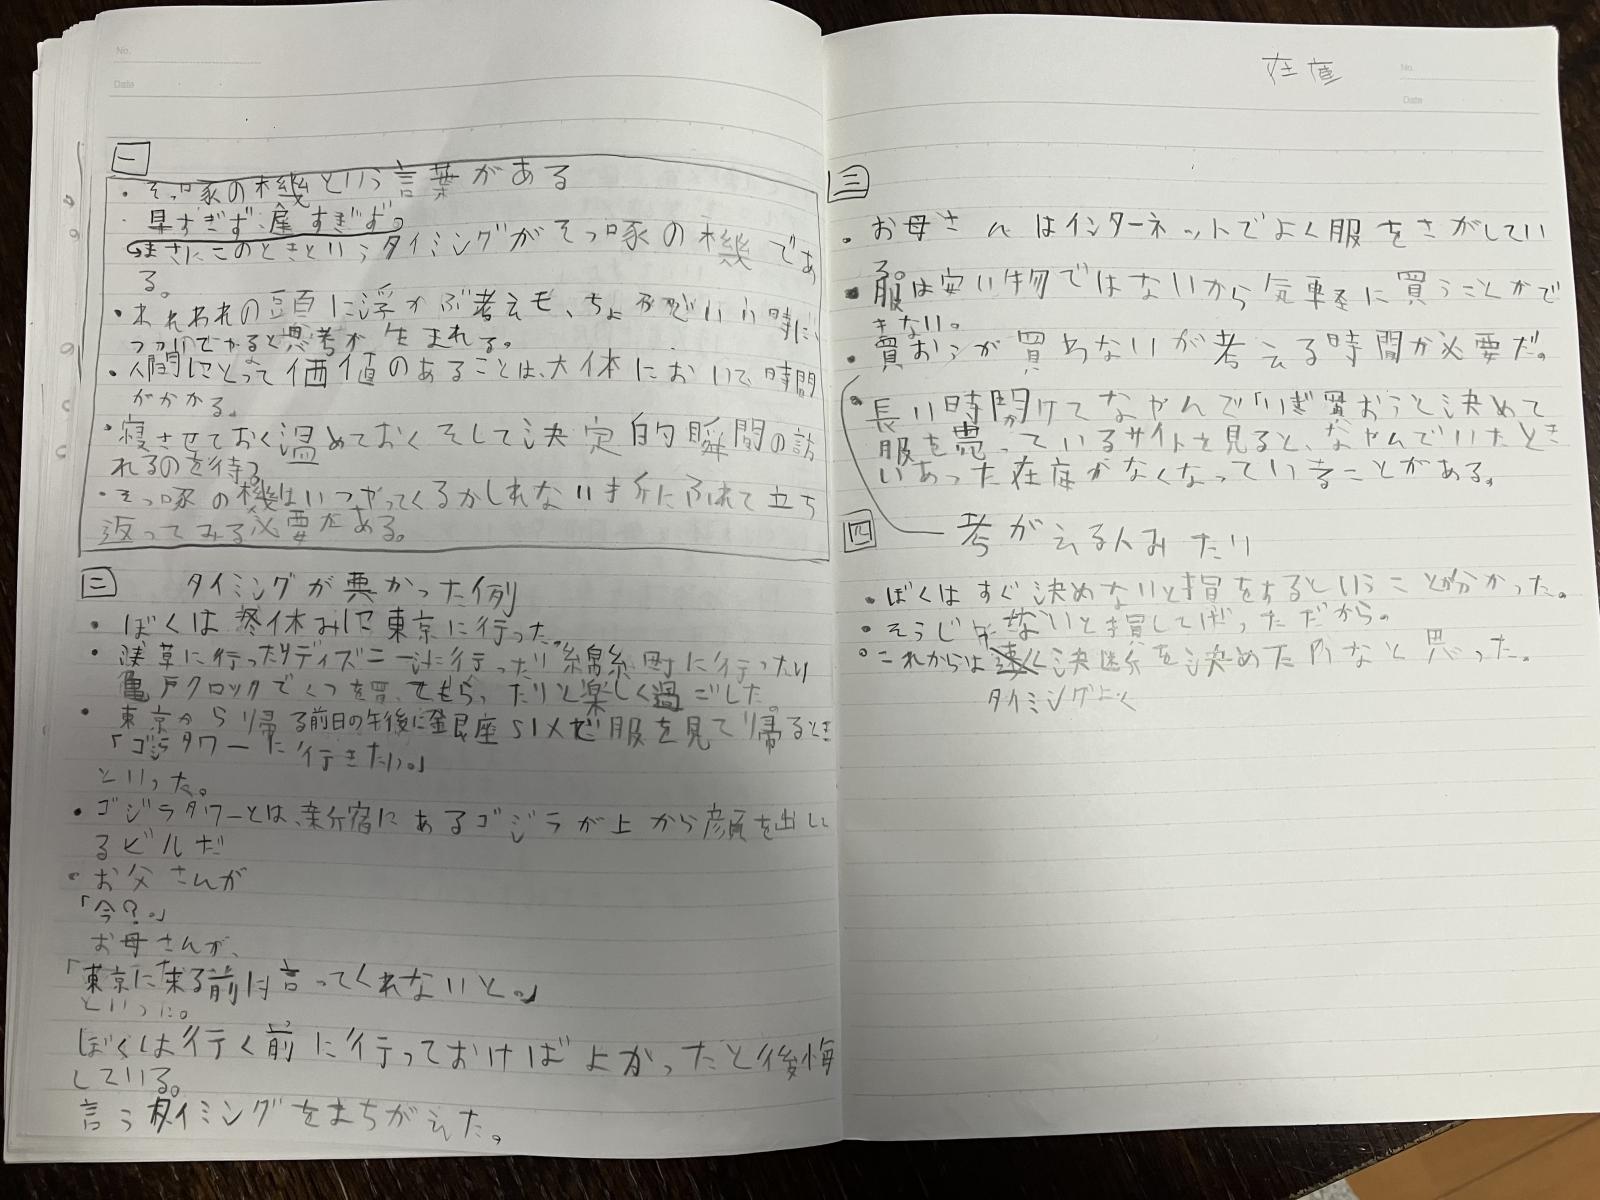 No.
Date
一
・そっ啄の機という言葉がある
・早すぎず、遅すぎず。
まさにこのときというタイミングがそっ啄の機であ
る。
・われわれの頭に浮かぶ考えも、ちょうどいい時に、
つついてやると思考が生まれる。
・人間にとって価値のあることは、大体において、時間
がかかる。
・寝させておく温めておくそして決定的瞬間の訪
れるのを待つ。
・そっ啄の機はいつやってくるかしれない
にふれて立ち
返ってみる必要がある。
二 タイミングが悪かった例
・ぼくは冬休みに東京に行った。
・浅草に行ったりディズニーに行ったり錦糸町に行ったり
亀戸クロックでくつを買ってもらったりと楽しく過ごした。
・東京から帰る前日の午後に銀座SIXで服を見て帰るとき
「ゴジラタワーに行きたい。」
といった。
・ゴジラタワーとは、新宿にあるゴジラが上から顔を出して
るビルだ
・お父さんが
「今？。」
お母さんが、
「東京に来る前に言ってくれないと。」
といった。
ぼくは行く前に行っておけばよかったと後悔
している。
言うタイミングをまちがえた。
在庫
No.
Date
三
・お母さんはインターネットでよく服をさがしてい
る。
・服は安い物ではないから気軽に買うことがで
きない。
・買おうが買わないが考える時間が必要だ。
・長い時間かけてなやんで「いざ買おうと決めて
服を売っているサイトを見ると、なやんでいたとき
いあった在庫がなくなっていることがある。
四 考がえるんみたり
・ぼくはすぐ決めないと損をするということが分かった。
・そうじゃないと損してしまっただから。
・これからは速く決断を決めたいなと思った。
タイミングよく